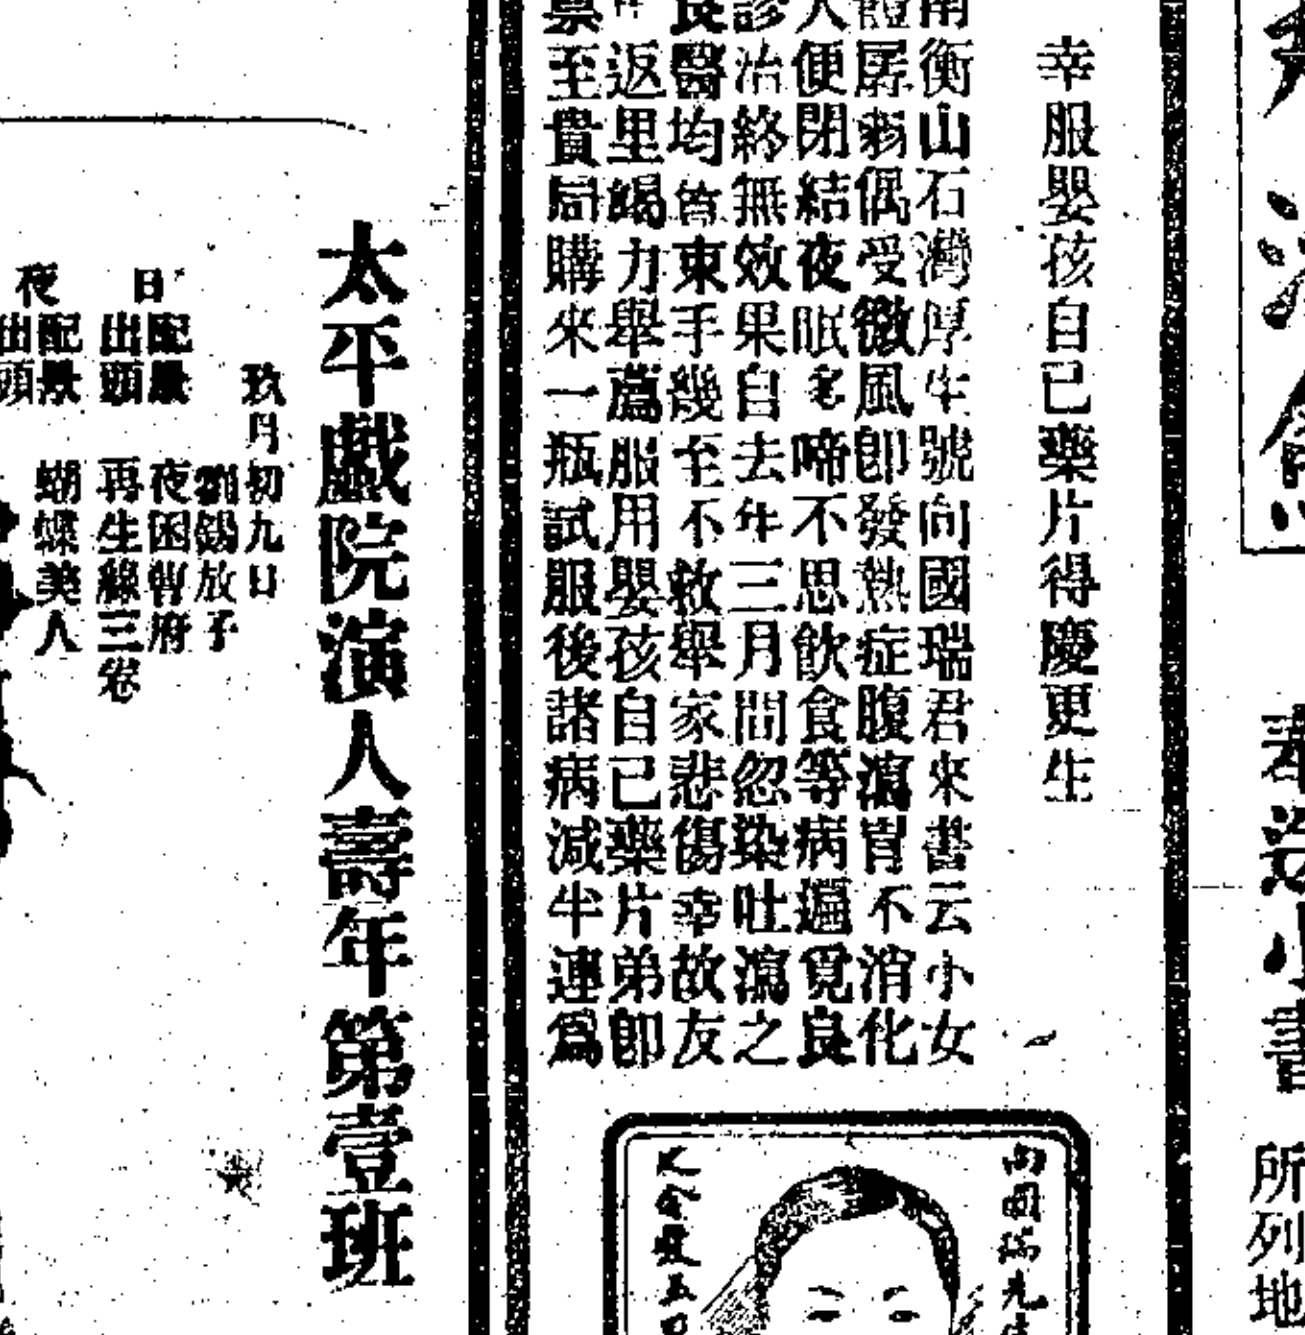 幸服嬰孩自己藥片得慶更生
南衡山石灣厚生號向國瑞君來書云小女
孱弱偶受微風卽發熱症腹瀉胃不消化
人便閉結夜眠啼不思飲食等病遍覓良
診治終無效果自去年三月間忽染吐瀉之
良醫均皆束手幾至不救舉家悲傷幸故友
返里竭力舉薦服用嬰孩自己藥片弟卽
票至貴局購來一瓶試服後諸病減半連爲
向國瑞先
太平戲院演人壽年第壹班
玖月初九日
劉錫放子
日
配景 夜困曹府
出頭 再生緣三卷
夜
配景 蝴蝶美人
出頭
所列地